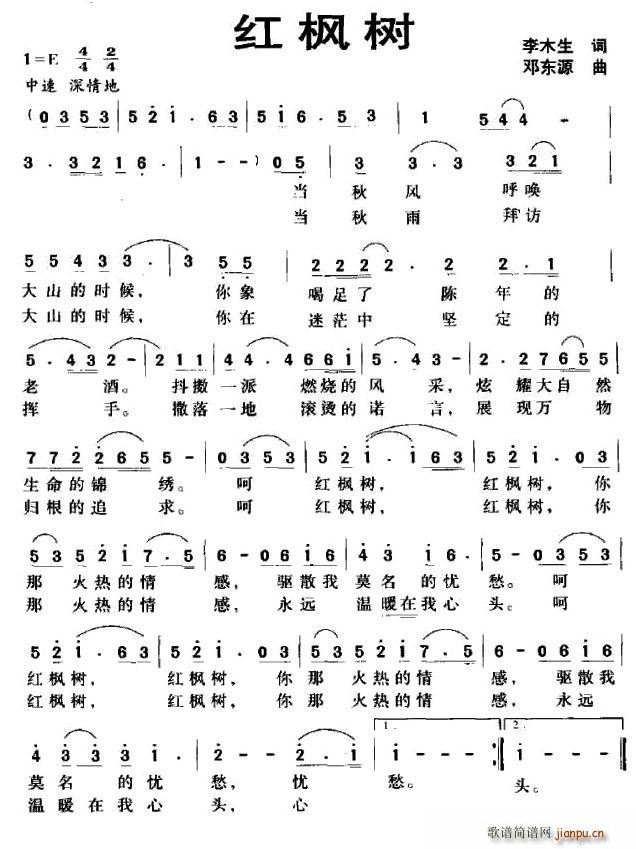 红枫树
李木生 词
1=E 4/4 2/4
邓东源 曲
中速 深情地
(0353 521·63 516·53 1 544-
3·3216· 1--) 05 3 3·3 321
当 秋 风 呼唤
当 秋 雨 拜访
55433-·3 55 2222·2 2·1
大山的时候, 你象 喝足了 陈 年的
大山的时候, 你在 迷茫中 坚 定的
5·432- 211 44·4 661 5·43- 2·27655
老 酒。 抖擞一派 燃烧的风 采, 炫耀大自然
挥 手。 撒落一地 滚烫的诺 言, 展现万 物
7722655- 0353 521·163 521·03
生命的锦 绣。 呵 红枫树, 红枫树, 你
归根的追 求。 呵 红枫树, 红枫树, 你
53 5217·5 6-0616 43 16· 5-0353
那 火热的情 感, 驱散我 莫名 的忧 愁。 呵
那 火热的情 感, 永远 温暖在我心 头。 呵
521·63 521·03 53 5217·5 6-0616
红枫树, 红枫树, 你那 火热的情 感, 驱散我
红枫树, 红枫树, 你那 火热的情 感, 永远
4 3331 2-- 32·1 1. 1-- 2. 1---
莫名 的忧 愁, 忧 愁。 头。
温暖在我心 头, 心
歌谱简谱网
jianpu.cn